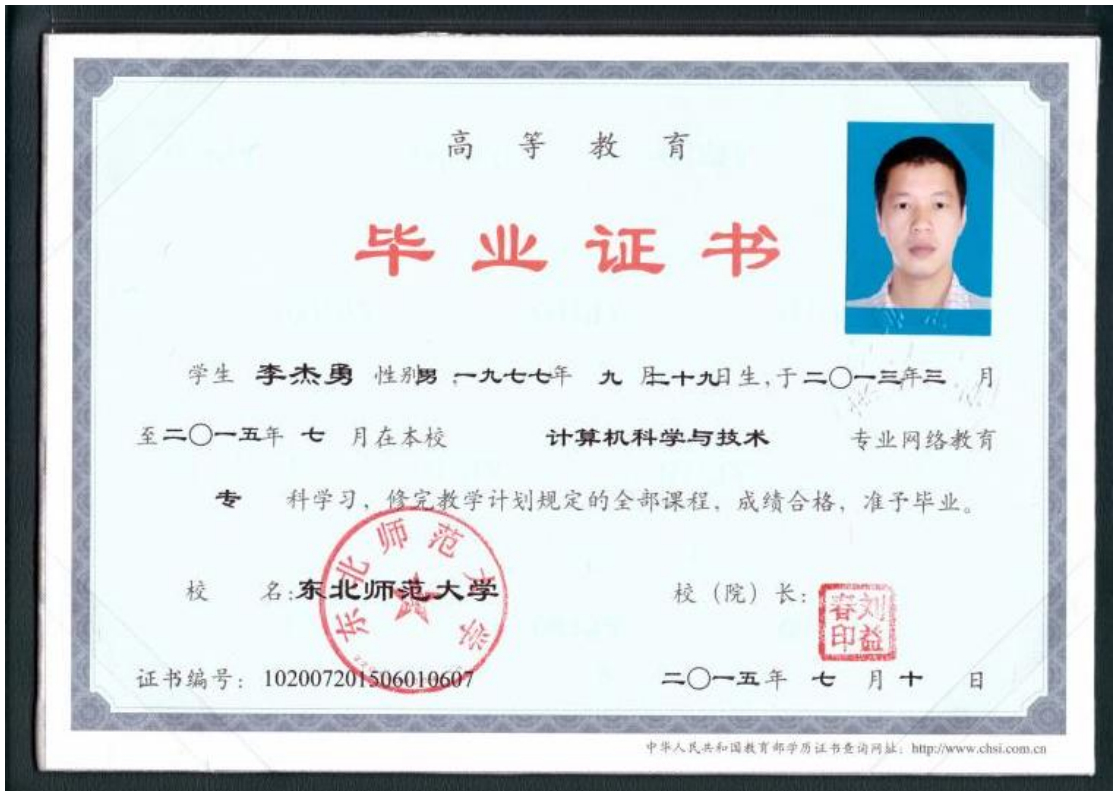 高等教育
毕业证书
学生 李杰勇 性别男,一九七七年 九 月二十九日生,于二〇一三年三 月
至二〇一五年 七 月在本校 计算机科学与技术 专业网络教育
专 科学习,修完教学计划规定的全部课程,成绩合格,准予毕业。
校 名:东北师范大学
校(院)长:
刘益春印
东北师范大学
证书编号:102007201506010607
二〇一五年 七 月 十 日
中华人民共和国教育部学历证书查询网址:http://www.chsi.com.cn